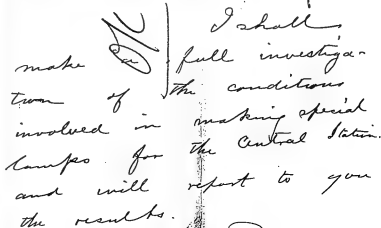 OK
I shall
make a full investiga-
tion of the conditions
involved in making special
lamps for the Central Station.
and will report to you
the results.